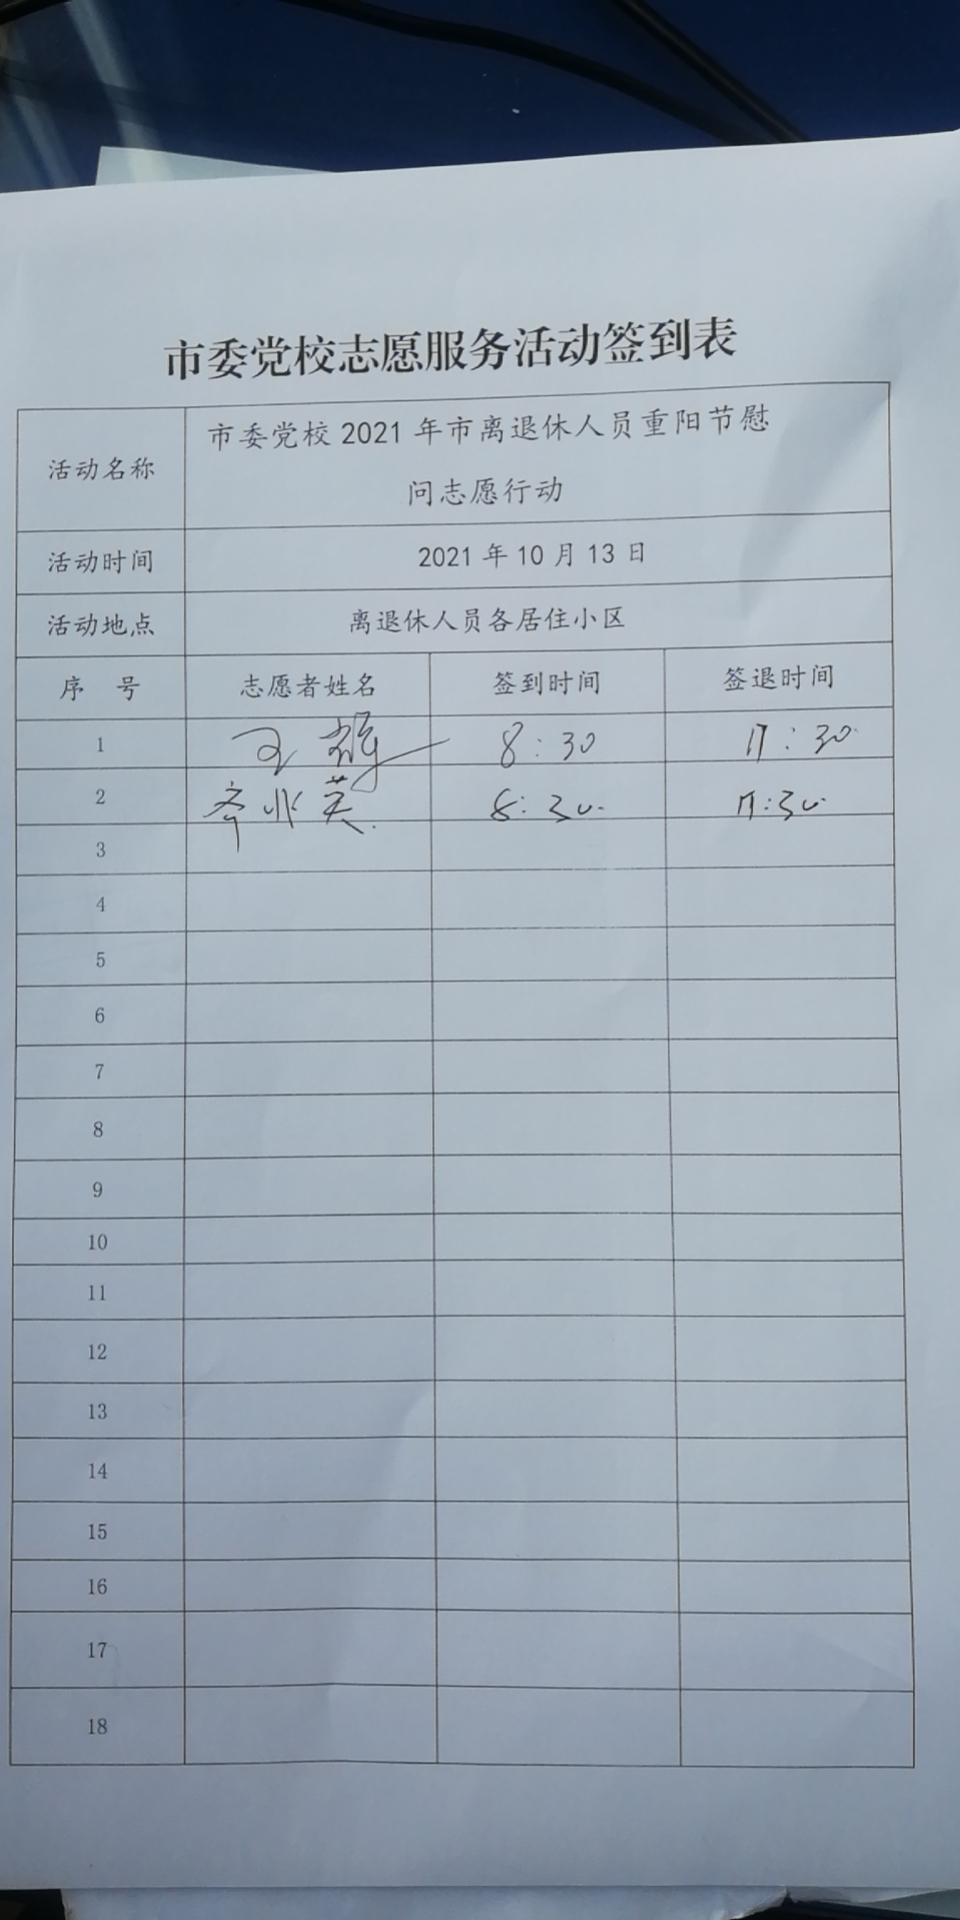 市委党校志愿服务活动签到表
活动名称 市委党校 2021 年市离退休人员重阳节慰
问志愿行动
活动时间 2021 年 10 月 13 日
活动地点 离退休人员各居住小区
序 号 志愿者姓名 签到时间 签退时间
1 王 8:30 17:30
2 齐兆英 8:30 17:30
3
4
5
6
7
8
9
10
11
12
13
14
15
16
17
18